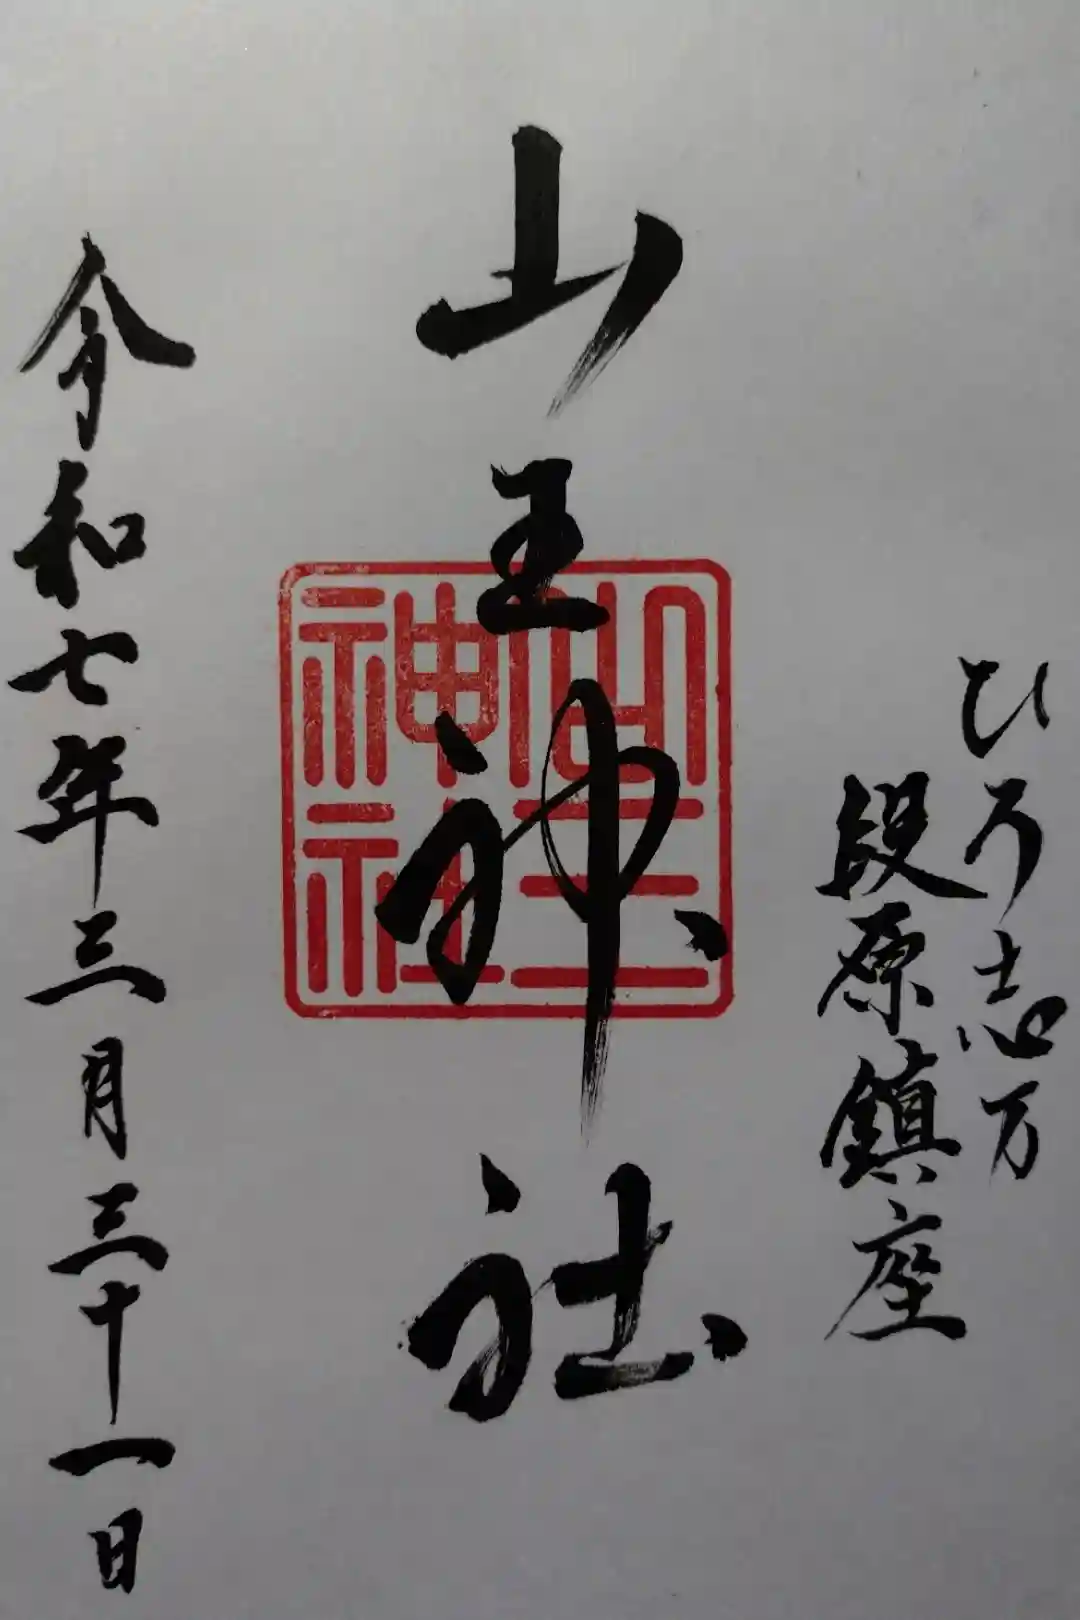 ひろ志万
段原鎮座
山王神社
山王
神社
令和七年三月三十一日